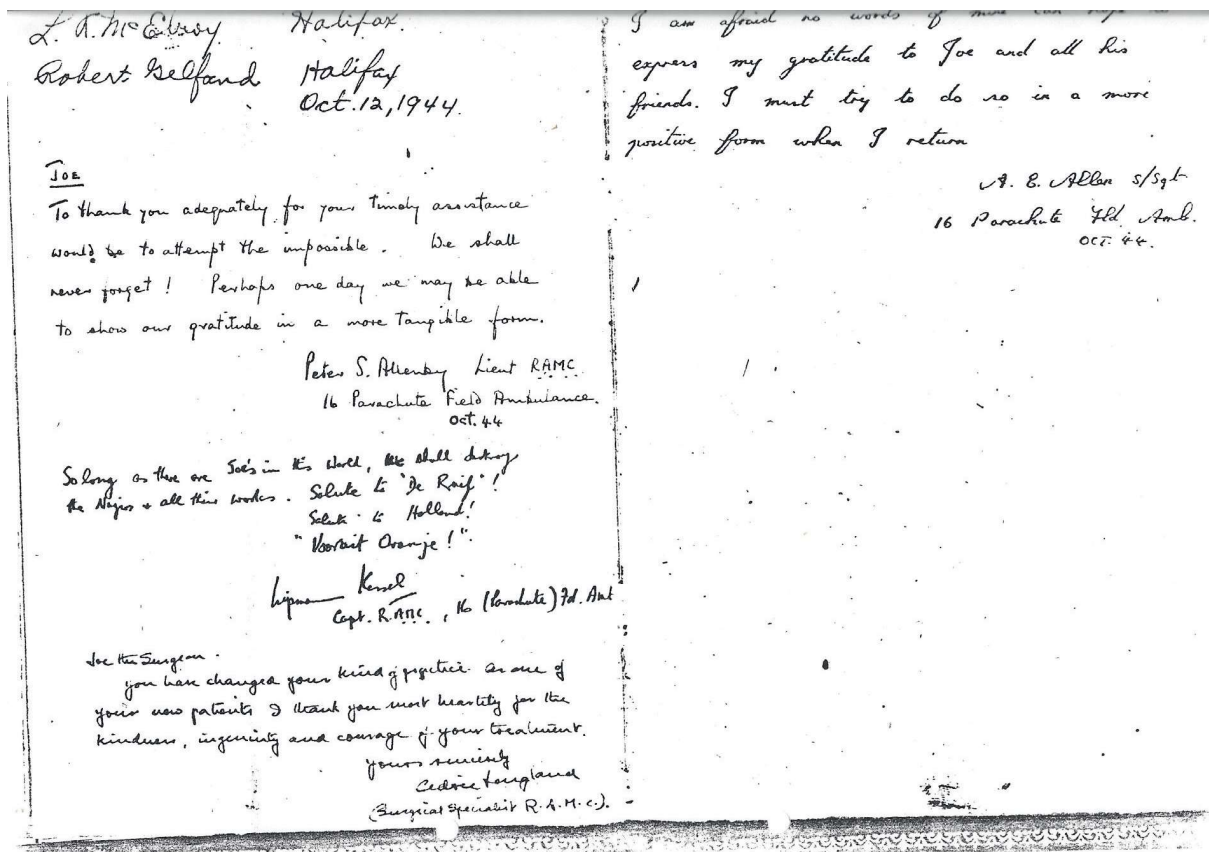 L. A. McElroy Halifax.
Robert Gelfand Halifax
Oct. 12, 1944.
JOE
To thank you adequately for your timely assistance
would be to attempt the impossible. We shall
never forget! Perhaps one day we may be able
to show our gratitude in a more tangible form.
Peter S. Allenby Lieut RAMC
16 Parachute Field Ambulance.
Oct. 44
So long as there are Joe's in this World, we shall destroy
the Nazis & all their works. Salute to "De Ruif"!
Salute to Holland!
"Voorait Oranje!".
Lipman Kessel
Capt. R.AMC., 16 (Parachute) Fd. Amb
Joe the Surgeon.
you have changed your kind of practice. As one of
your new patients I thank you most heartily for the
kindness, ingenuity and courage of your treatment.
yours sincerely
Cedric Longland
(Surgical Specialist R.A.M.C.).
I am afraid no words of mine can hope to
express my gratitude to Joe and all his
friends. I must try to do so in a more
positive form when I return
A. E. Allen S/Sgt
16 Parachute Fld Amb.
OCT. 44.